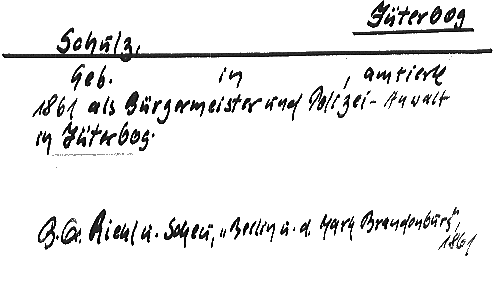 Jüterbog
Schulz,
Geb. in , amtierte
1861 als Bürgermeister und Polizei-Anwalt
in Jüterbog.
B.G. Riehl u. Scheu, „Berlin u. d. Mark Brandenburg",
1861